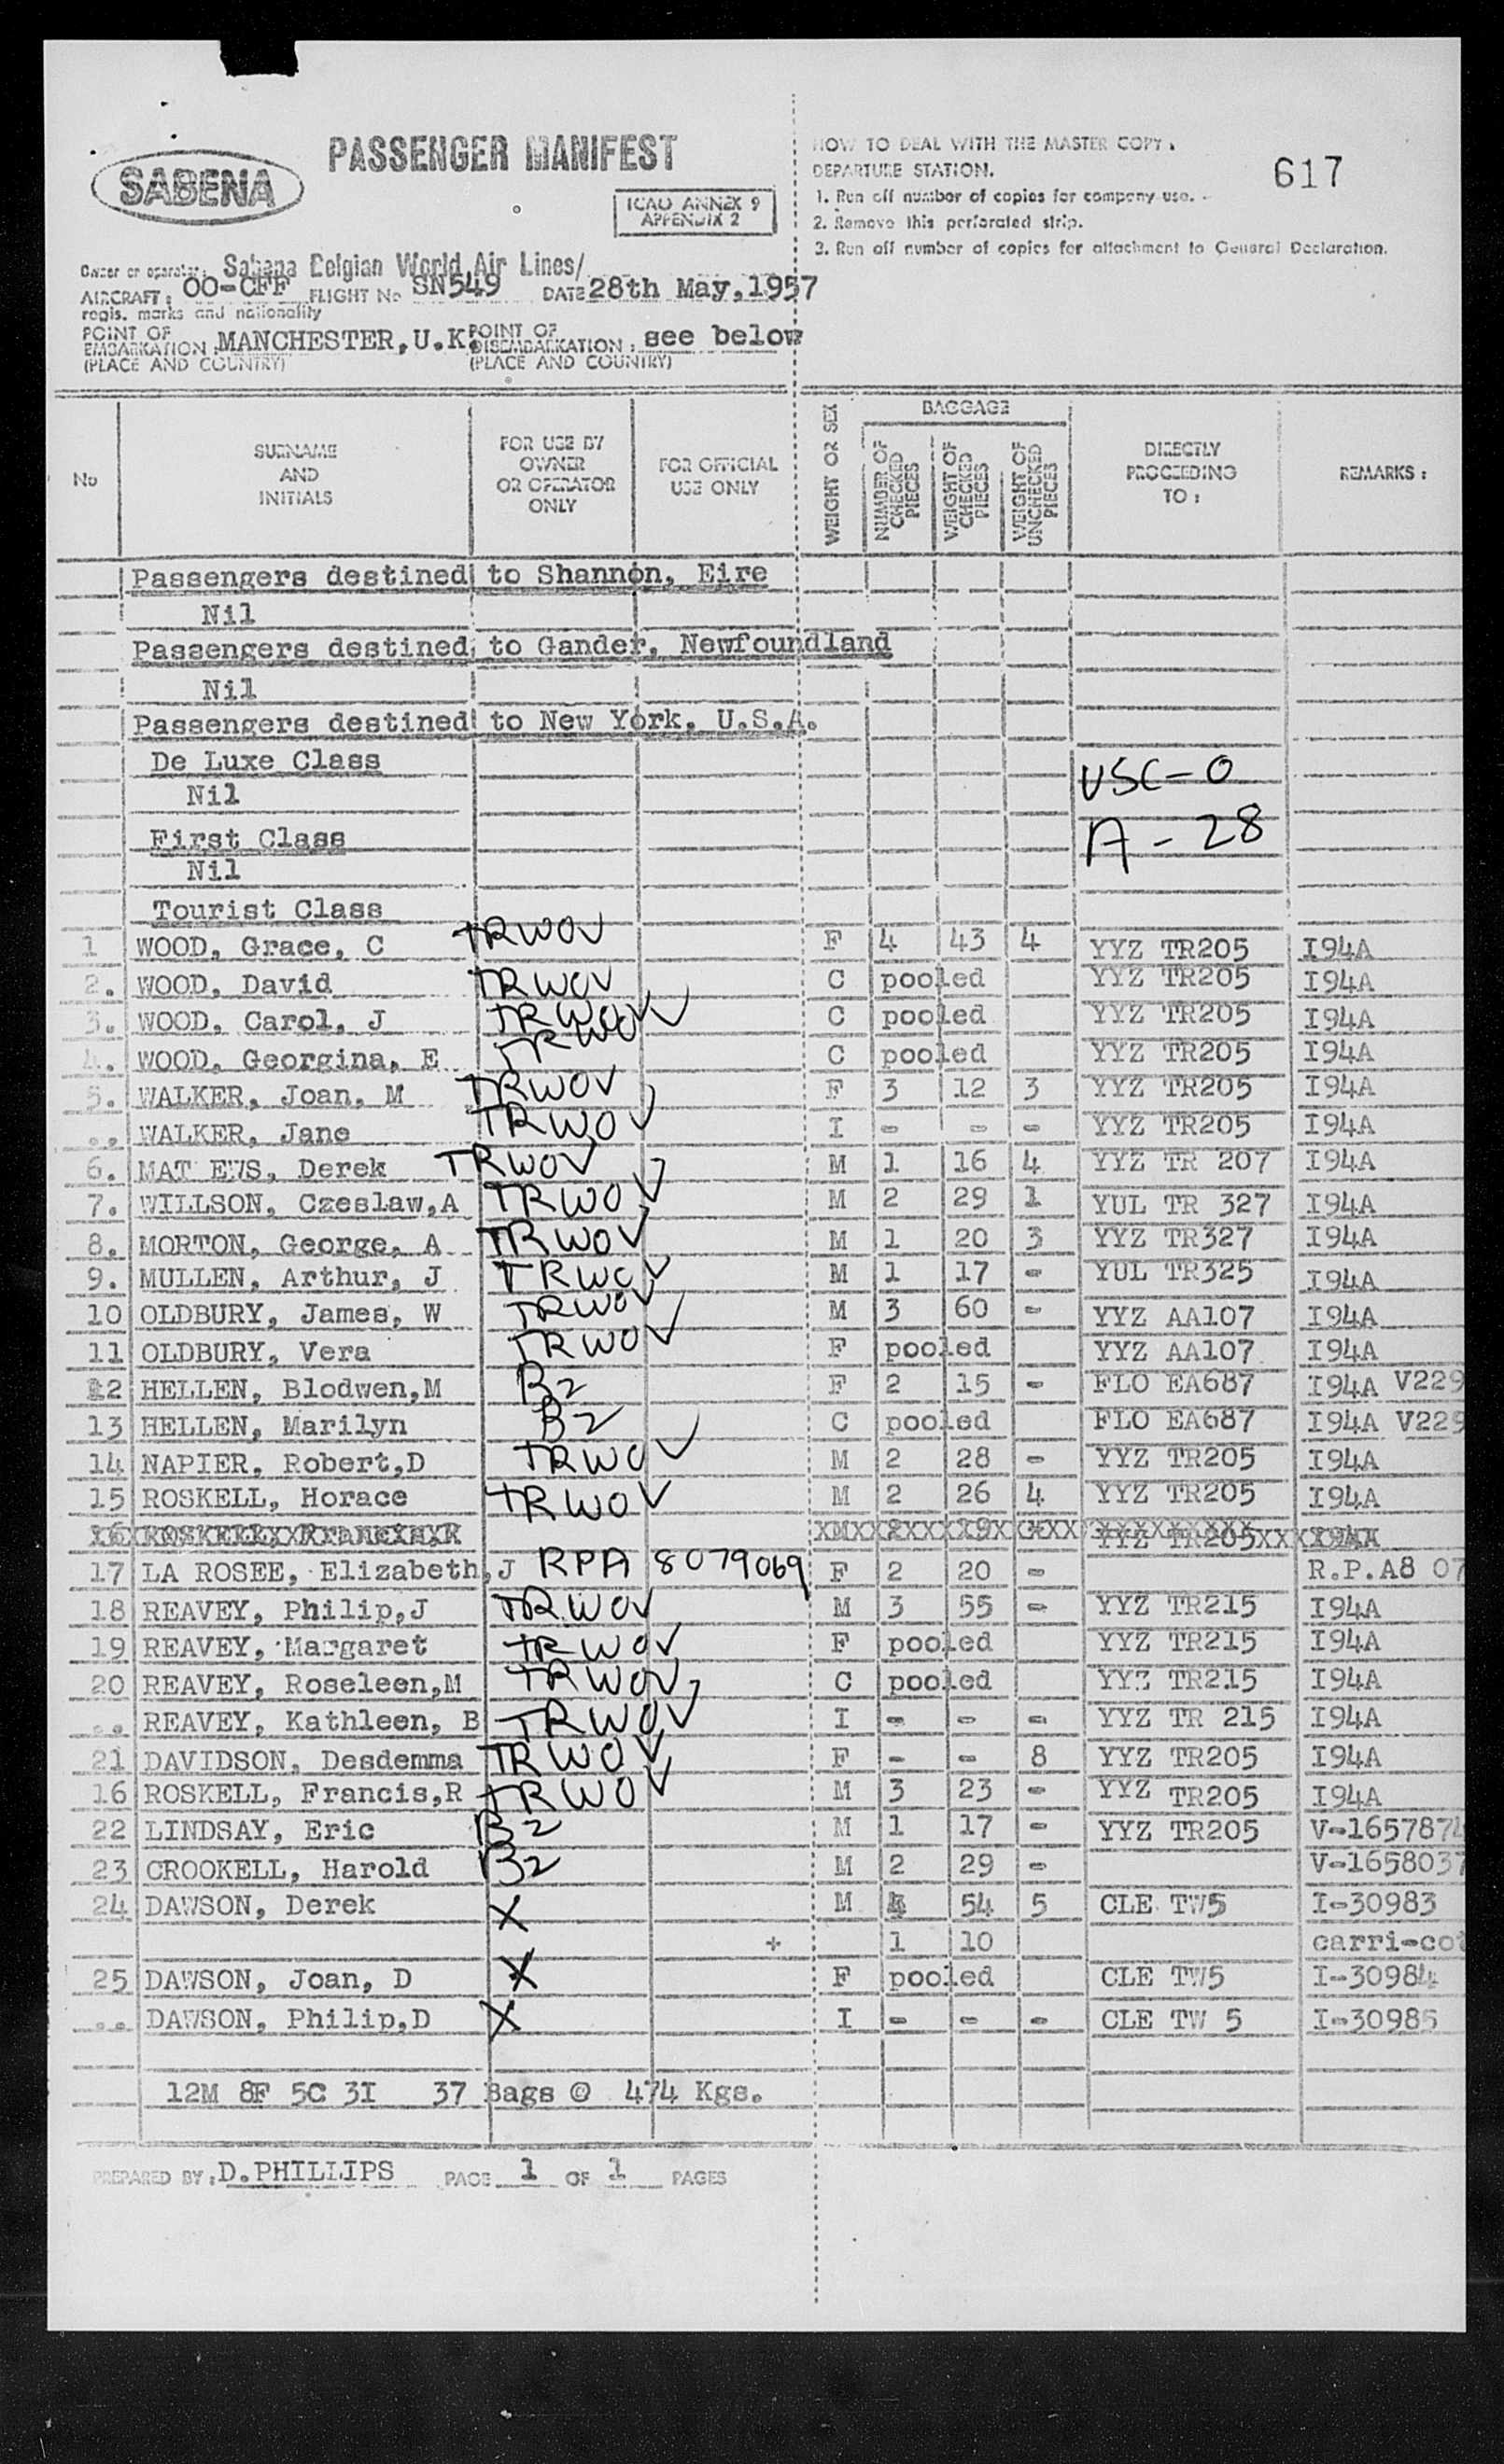 PASSENGER MANIFEST
SABENA
ICAO ANNEX 9
APPENDIX 2
HOW TO DEAL WITH THE MASTER COPY.
DEPARTURE STATION.
1. Run off number of copies for company use.
2. Remove this perforated strip.
3. Run off number of copies for attachment to General Declaration.
617
Owner or operator: Sabena Belgian World Air Lines/
AIRCRAFT: OO-CFF FLIGHT No SN549 DATE 28th May, 1957
regis. marks and nationality
POINT OF EMBARKATION: MANCHESTER, U.K. POINT OF DISEMBARKATION: see below
(PLACE AND COUNTRY) (PLACE AND COUNTRY)
No
SURNAME AND INITIALS
FOR USE BY OWNER OR OPERATOR ONLY
FOR OFFICIAL USE ONLY
WEIGHT OR SEX
BAGGAGE
NUMBER OF CHECKED PIECES
WEIGHT OF CHECKED PIECES
WEIGHT OF UNCHECKED PIECES
DIRECTLY PROCEEDING TO:
REMARKS:
Passengers destined to Shannon, Eire
Nil
Passengers destined to Gander, Newfoundland
Nil
Passengers destined to New York, U.S.A.
De Luxe Class
USC - 0
Nil
A - 28
First Class
Nil
Tourist Class
1 WOOD, Grace, C TRWOV F 4 43 4 YYZ TR205 I94A
2. WOOD, David TRWOV C pooled YYZ TR205 I94A
3. WOOD, Carol, J TRWOV C pooled YYZ TR205 I94A
4. WOOD, Georgina, E TRWOV C pooled YYZ TR205 I94A
5. WALKER, Joan, M TRWOV F 3 12 3 YYZ TR205 I94A
.. WALKER, Jane TRWOV I - - - YYZ TR205 I94A
6. MAT EWS, Derek TRWOV M 1 16 4 YYZ TR 207 I94A
7. WILLSON, Czeslaw,A TRWOV M 2 29 1 YUL TR 327 I94A
8. MORTON, George, A TRWOV M 1 20 3 YYZ TR327 I94A
9. MULLEN, Arthur, J TRWOV M 1 17 - YUL TR325 I94A
10 OLDBURY, James, W TRWOV M 3 60 - YYZ AA107 I94A
11 OLDBURY, Vera TRWOV F pooled YYZ AA107 I94A
12 HELLEN, Blodwen,M B2 F 2 15 - FLO EA687 I94A V229
13 HELLEN, Marilyn B2 C pooled FLO EA687 I94A V229
14 NAPIER, Robert,D TRWOV M 2 28 - YYZ TR205 I94A
15 ROSKELL, Horace TRWOV M 2 26 4 YYZ TR205 I94A
17 LA ROSEE, Elizabeth,J RPA 8079069 F 2 20 - R.P.A8 07
18 REAVEY, Philip,J TRWOV M 3 55 - YYZ TR215 I94A
19 REAVEY, Margaret TRWOV F pooled YYZ TR215 I94A
20 REAVEY, Roseleen,M TRWOV C pooled YYZ TR215 I94A
.. REAVEY, Kathleen, B TRWOV I - - - YYZ TR 215 I94A
21 DAVIDSON, Desdemma TRWOV F - - 8 YYZ TR205 I94A
16 ROSKELL, Francis,R TRWOV M 3 23 - YYZ TR205 I94A
22 LINDSAY, Eric B2 M 1 17 - YYZ TR205 V-1657874
23 CROOKELL, Harold B2 M 2 29 - V-1658037
24 DAWSON, Derek X M 54 5 CLE TW5 I-30983
+ 1 10 carri-cot
25 DAWSON, Joan, D X F pooled CLE TW5 I-30984
.. DAWSON, Philip,D X I - - - CLE TW 5 I-30985
12M 8F 5C 3I 37 Bags @ 474 Kgs.
PREPARED BY: D.PHILLIPS PAGE 1 OF 1 PAGES